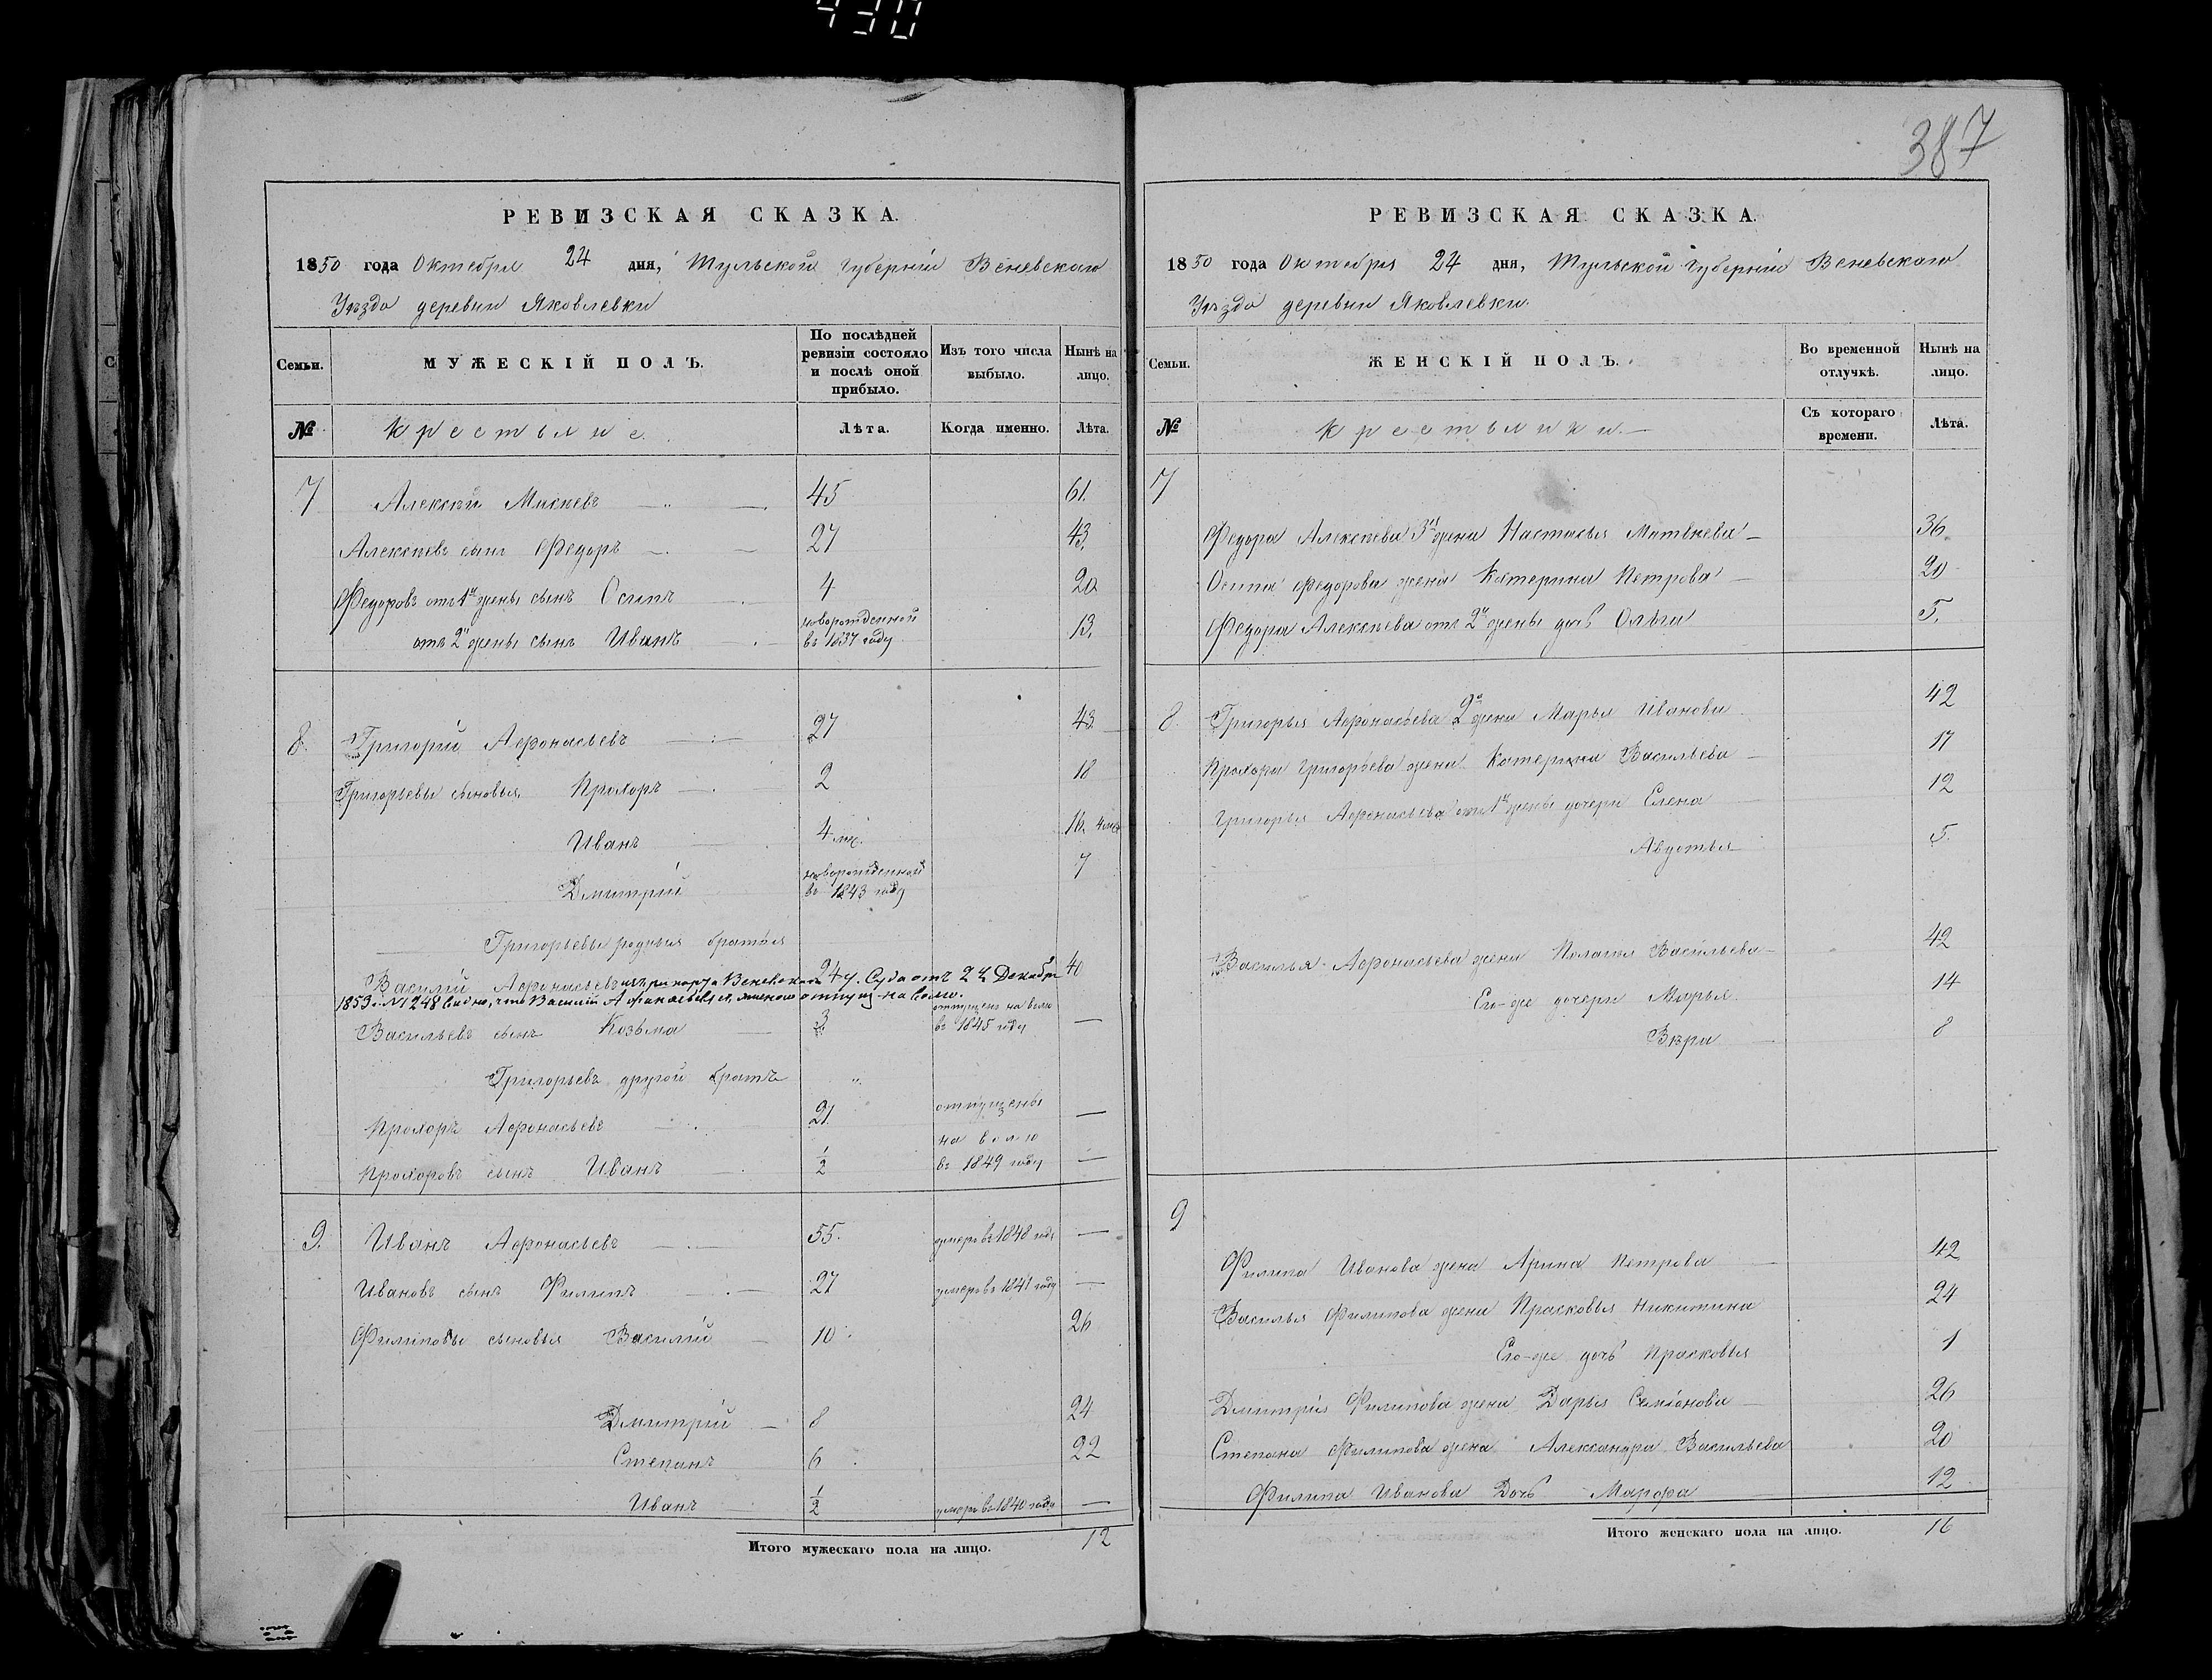 430
387
РЕВИЗСКАЯ СКАЗКА.
1850 года Октября 24 дня, Тульской губерніи Веневскаго
Уѣзда деревни Яковлевки
Семьи. МУЖЕСКІЙ ПОЛЪ. По послѣдней ревизіи состояло и послѣ оной прибыло. Изъ того числа выбыло. Нынѣ на лицо.
№ Крестьяне. Лѣта. Когда именно. Лѣта.
7 Алексѣй 45 61.
Алексѣевъ сынъ Федоръ 27 43.
Федоровъ отъ 1й жены сынъ Осипъ 4 20
отъ 2й жены сынъ Иванъ новорожденной въ 1837 году 13.
8. Григорій Афонасьевъ 27 43
Григорьевы сыновья Прохоръ 2 18
Иванъ 4 мѣ. 16. 4 мѣ
Дмитрій новорожденной въ 1843 году 7
Григорьевы родныя братья
Василій Афонасьевъ изъ рапорта Веневскаго У. Суда отъ 22 Декабря 24 40
1853. № 1248 видно, что Василій Афанасьевъ отпущ. на волю.
Васильевъ сынъ Козьма 3 отпущенъ на волю въ 1845 году —
Григорьевъ другой братъ "
Прохоръ Афонасьевъ 21. отпущены —
на волю
Прохоровъ сынъ Иванъ 1/2 въ 1849 году —
9. Иванъ Афонасьевъ 55. умеръ въ 1848 годе —
Ивановъ сынъ Филипъ 27 умеръ въ 1841 году —
Филиповы сыновья Василій 10 26
Дмитрій 8 24
Степанъ 6 22
Иванъ 1/2 умеръ въ 1840 году —
Итого мужескаго пола на лицо. 12
РЕВИЗСКАЯ СКАЗКА.
1850 года Октября 24 дня, Тульской губерніи Веневскаго
Уѣзда деревни Яковлевки.
Семьи. ЖЕНСКІЙ ПОЛЪ. Во временной отлучкѣ. Нынѣ на лицо.
№ Крестьянки. Съ котораго времени. Лѣта.
7
Федора Алексѣева 3я жена Настасья Матвѣева 36
Осипа Федорова жена Катерина Петрова 20
Федора Алексѣева отъ 2й жены дочь Ольга 5.
8. Григорья Афонасьева 2я жена Марья Иванова 42
Прохора Григорьева жена Катерина Васильева 17
Григорья Афонасьева отъ 1й жены дочери Елена 12
Авдотья 5.
Василья Афонасьева жена Пелагея Васильева 42
Его-же дочери Марья 14
Вѣра 8
9
Филипа Иванова жена Арина Петрова 42
Василья Филипова жена Прасковья Никитина 24
Его-же дочь Прасковья 1
Дмитрія Филипова жена Дарья Семіонова 26
Степана Филипова жена Александра Васильева 20
Филипа Иванова Дочь Марфа 12
Итого женскаго пола на лицо. 16